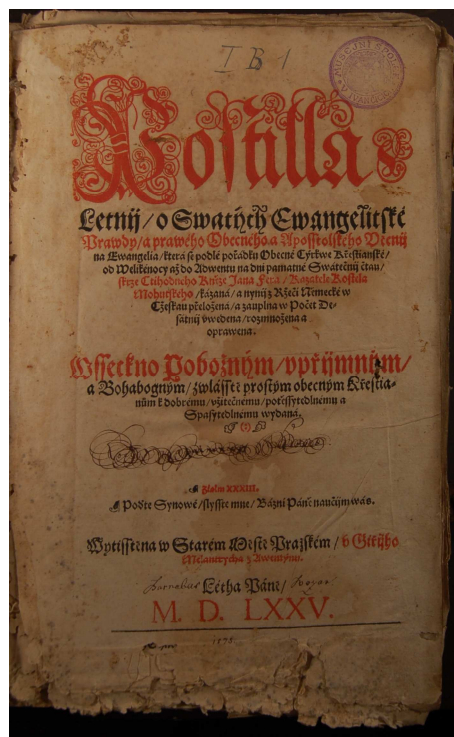 I B 1
Postilla
Letnij / o Swatých Ewangelitské
Prawdy / a prawého Obecného a Aposstolského Včenij
na Ewangelia / která se podlé pořádku Obecné Cýrkwe Křestianské /
od Welikénocy až do Adwentu na dni pamatné Swátečnij čtau /
skrze Ctihodného Kněze Jana Fera / Kazatele Kostela
Mohutského / kázaná / a nynij z Ržeči Německé w
Cžeskau přeložená / a zauplna w Počet De-
sátnij vwedena / rozmnožená a
oprawena.
Wsseckno Pobožným / vpřijmným /
a Bohabogným / zwlásstě prostým obecným Křestia-
nům k dobrému / vžitečnému / potěssytedlnému a
Spasytedlnému wydaná.
Žalm XXXIII.
Poďte Synowé / slysste mne / Bázni Páně naučijm wás.
Wytisstěna w Starém Městě Pražském / v Giřijho
Melantrycha z Awentýnu.
Létha Páně /
M. D. LXXV.
1575